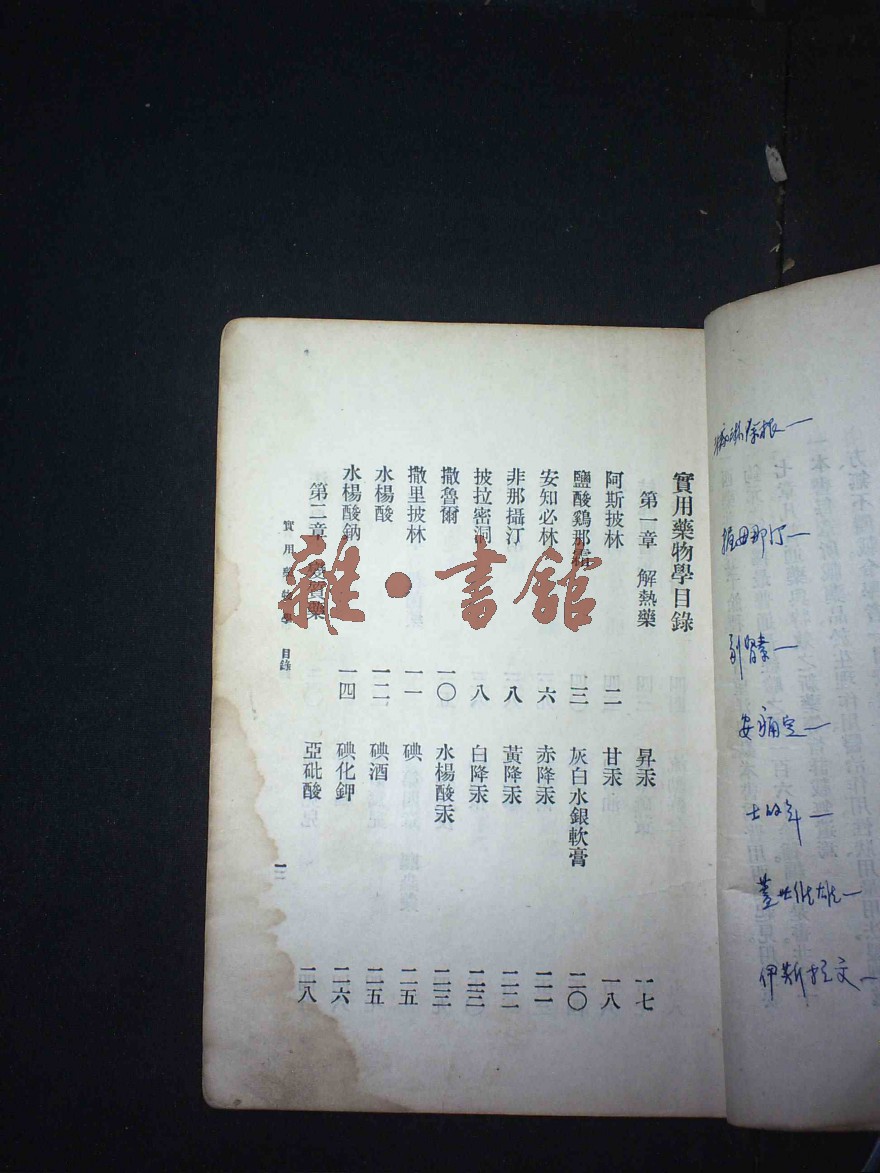 實用藥物學目錄
第一章 解熱藥
阿斯披林 二
鹽酸鷄那霜 三
安知必林 六
非那攝汀 八
披拉密洞 八
撒魯爾 一〇
撒里披林 一一
水楊酸 一二
水楊酸鈉 一四
第二章 變質藥
昇汞 一七
甘汞 一八
灰白水銀軟膏 二〇
赤降汞 二一
黃降汞 二二
白降汞 二三
水楊酸汞 二三
碘 二五
碘酒 二五
碘化鉀 二六
亞砒酸 二八
實用藥物學 目錄
雜·書館
安痛定一
士的年一